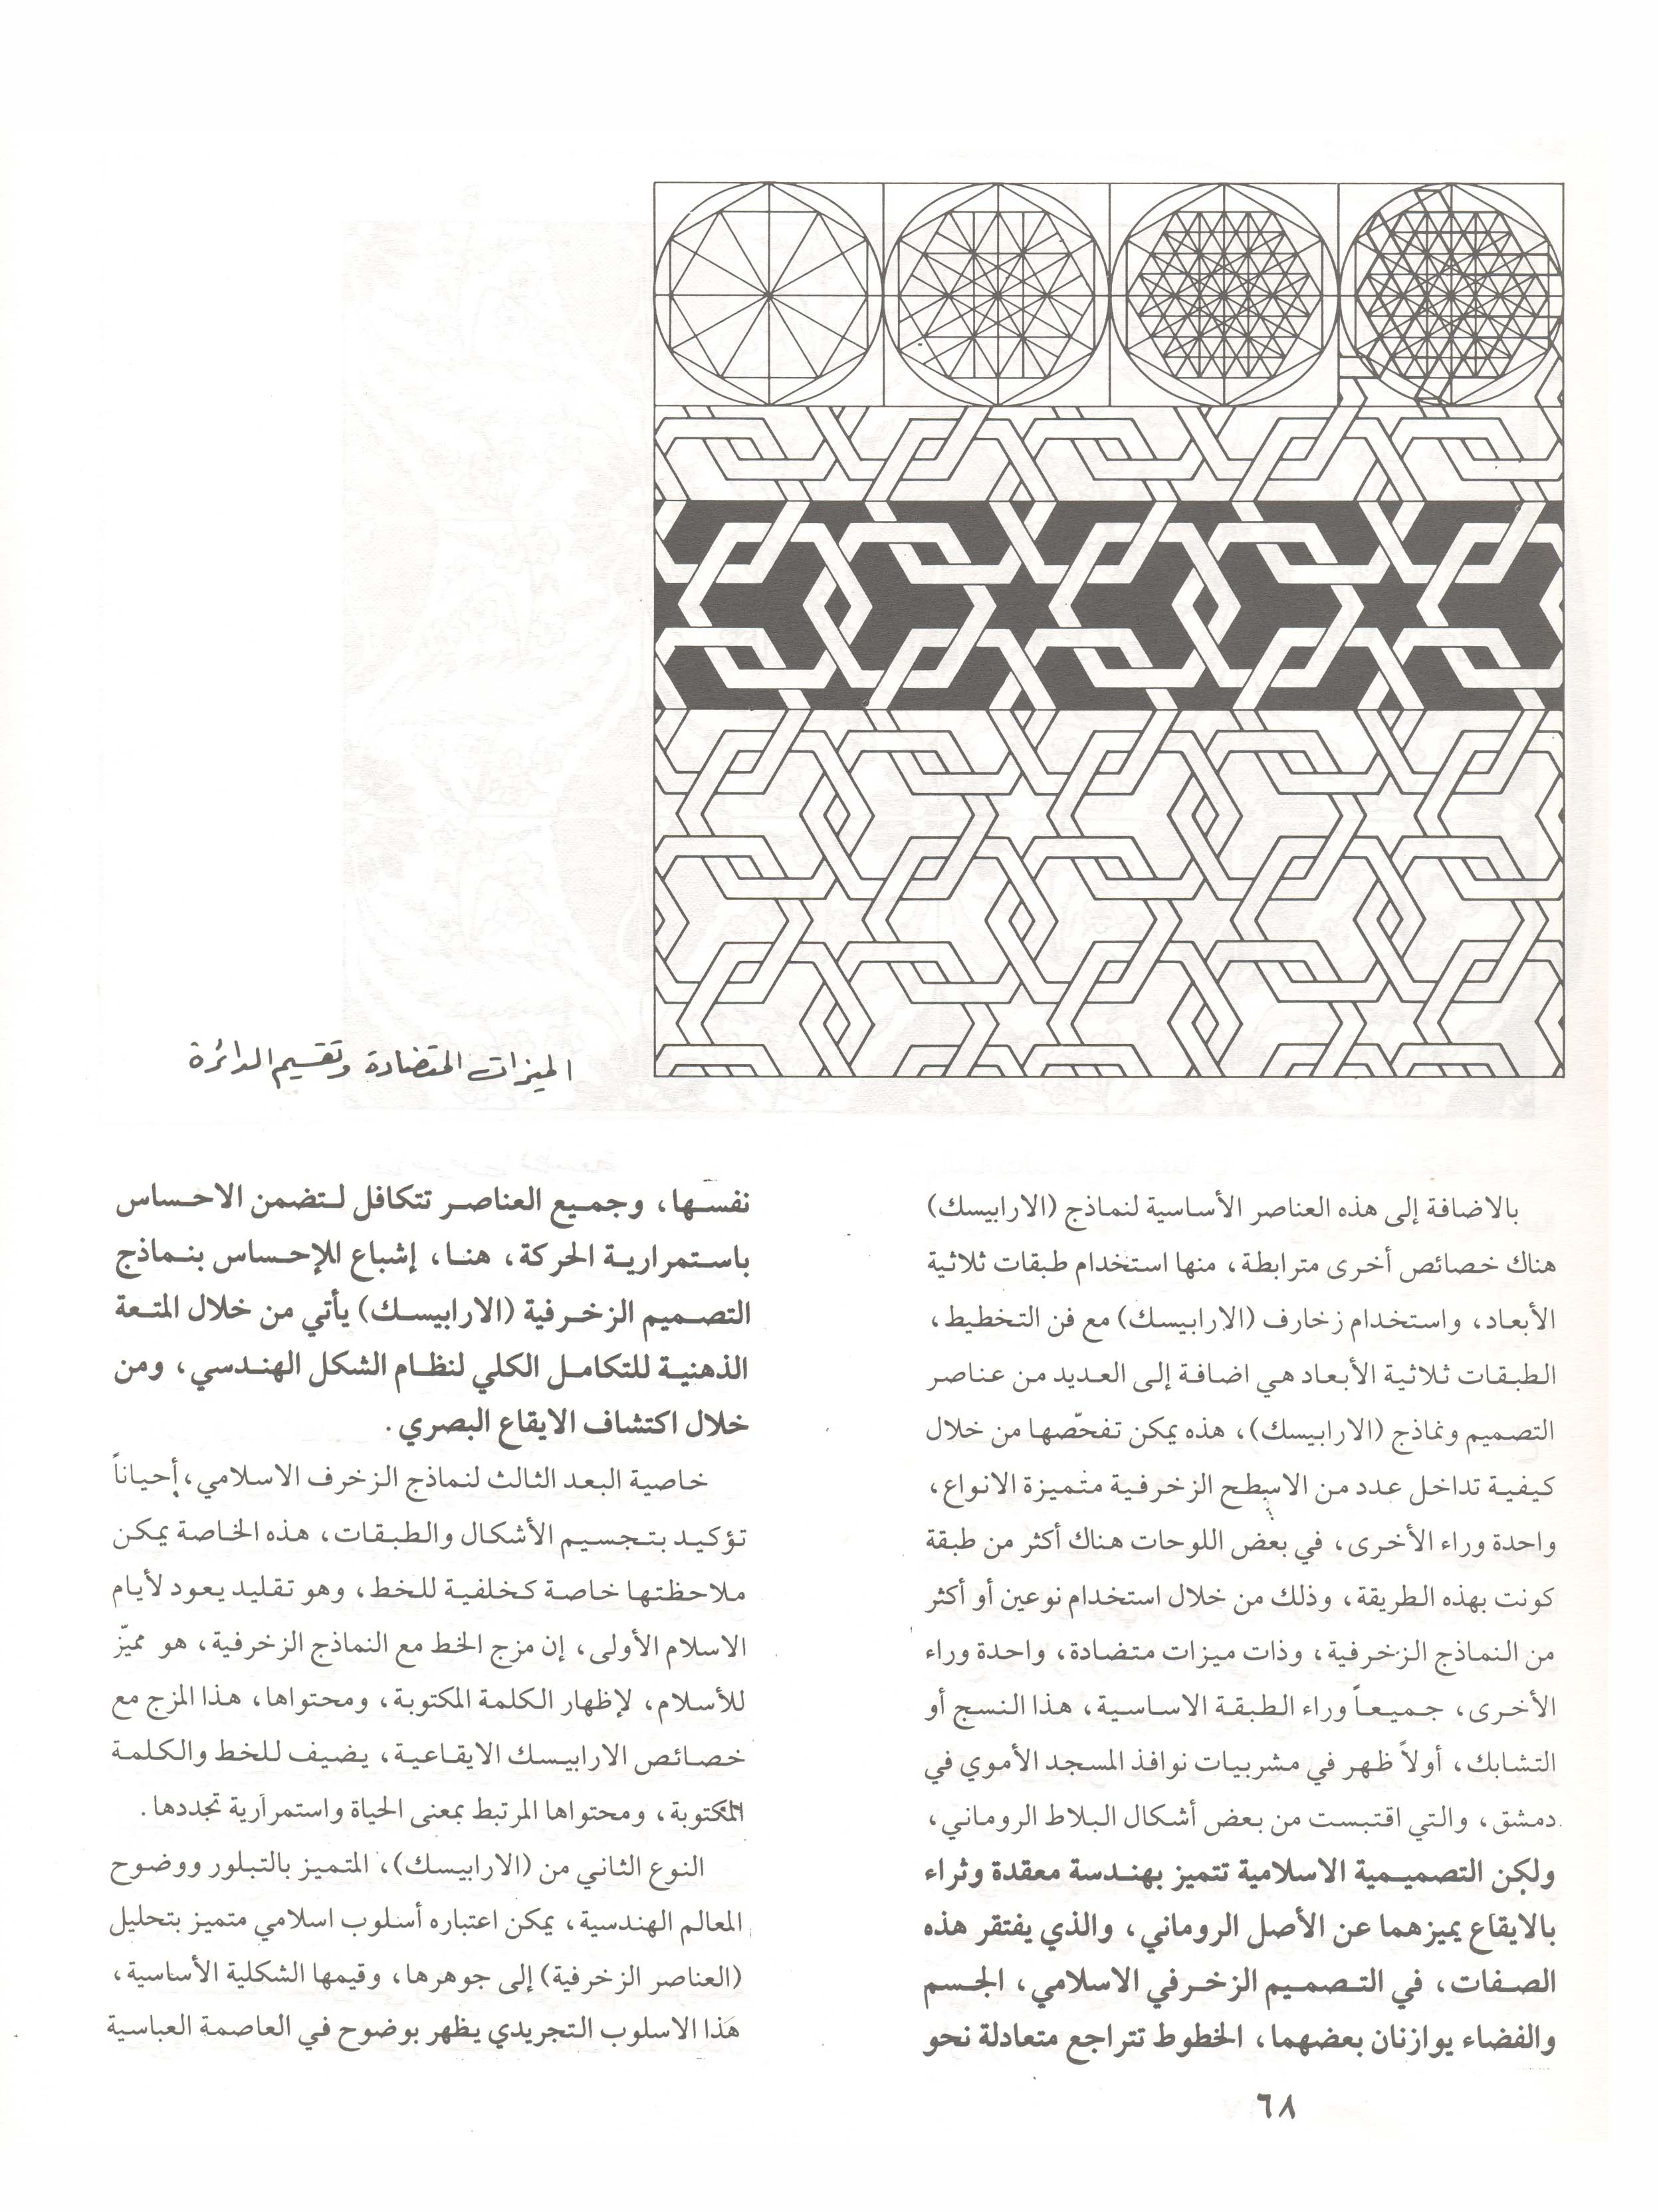 الميزات المتضادة وتقسيم الدائرة
بالاضافة إلى هذه العناصر الأساسية لنماذج (الارابيسك)
هناك خصائص أخرى مترابطة، منها استخدام طبقات ثلاثية
الأبعاد، واستخدام زخارف (الارابيسك) مع فن التخطيط،
الطبقات ثلاثية الأبعاد هي اضافة إلى العديد من عناصر
التصميم ونماذج (الارابيسك)، هذه يمكن تفحّصها من خلال
كيفية تداخل عدد من الاسطح الزخرفية متميزة الانواع،
واحدة وراء الأخرى، في بعض اللوحات هناك أكثر من طبقة
كونت بهذه الطريقة، وذلك من خلال استخدام نوعين أو أكثر
من النماذج الزخرفية، وذات ميزات متضادة، واحدة وراء
الأخرى، جميعاً وراء الطبقة الاساسية، هذا النسج أو
التشابك، أولاً ظهر في مشربيات نوافذ المسجد الأموي في
دمشق، والتي اقتبست من بعض أشكال البلاط الروماني،
ولكن التصميمية الاسلامية تتميز بهندسة معقدة وثراء
بالايقاع يميزهما عن الأصل الروماني، والذي يفتقر هذه
الصفات، في التصميم الزخرفي الاسلامي، الجسم
والفضاء يوازنان بعضهما، الخطوط تتراجع متعادلة نحو
نفسها، وجميع العناصر تتكافل لتضمن الاحساس
باستمرارية الحركة، هنا، إشباع للإحساس بنماذج
التصميم الزخرفية (الارابيسك) يأتي من خلال المتعة
الذهنية للتكامل الكلي لنظام الشكل الهندسي، ومن
خلال اكتشاف الايقاع البصري.
خاصية البعد الثالث لنماذج الزخرف الاسلامي، أحياناً
تؤكيد بتجسيم الأشكال والطبقات، هذه الخاصة يمكن
ملاحظتها خاصة كخلفية للخط، وهو تقليد يعود لأيام
الاسلام الأولى، إن مزج الخط مع النماذج الزخرفية، هو مميّز
للأسلام، لإظهار الكلمة المكتوبة، ومحتواها، هذا المزج مع
خصائص الارابيسك الايقاعية، يضيف للخط والكلمة
المكتوبة، ومحتواها المرتبط بمعنى الحياة واستمرارية تجددها.
النوع الثاني من (الارابيسك)، المتميز بالتبلور ووضوح
المعالم الهندسية، يمكن اعتباره أسلوب اسلامي متميز بتحليل
(العناصر الزخرفية) إلى جوهرها، وقيمها الشكلية الأساسية،
هذا الاسلوب التجريدي يظهر بوضوح في العاصمة العباسية
٦٨